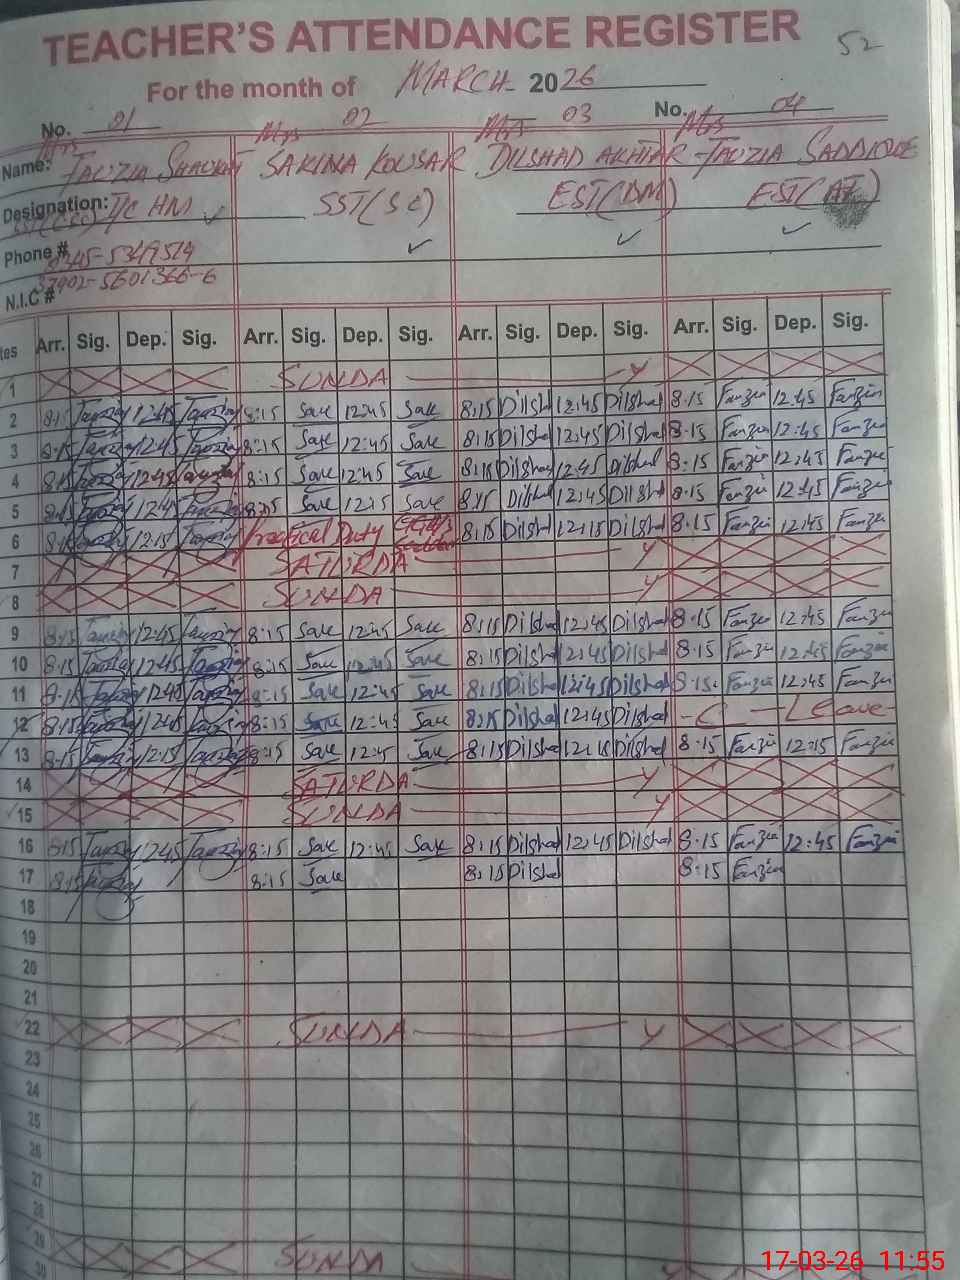 TEACHER'S ATTENDANCE REGISTER 52
For the month of MARCH 2026
No. 01 02 03 No. 04
Mrs Mrs Mrs Mrs
Name: FAUZIA SHAUKAT SAKINA KOUSAR DILSHAD AKHTAR FAUZIA SADDIQUE
Designation: I/C HM SST(SC) EST(DM) EST(AT)
Phone # 0345-5349514
37402-5601366-6
N.I.C #
tes Arr. Sig. Dep. Sig. Arr. Sig. Dep. Sig. Arr. Sig. Dep. Sig. Arr. Sig. Dep. Sig.
1 SUNDAY
2 8:15 12:45 8:15 12:45 8:15 Dilshad 12:45 Dilshad 8:15 Fauzia 12:45 Fauzia
3 8:15 12:45 8:15 12:45 8:15 Dilshad 12:45 Dilshad 8:15 Fauzia 12:45 Fauzia
4 8:15 12:45 8:15 12:45 8:15 Dilshad 12:45 Dilshad 8:15 Fauzia 12:45 Fauzia
5 8:15 12:45 8:15 8:15 Dilshad 12:45 Dilshad 8:15 Fauzia 12:45 Fauzia
6 8:15 12:15 Practical Duty 8:15 Dilshad 12:15 Dilshad 8:15 Fauzia 12:45 Fauzia
7 SATURDAY
8 SUNDAY
9 8:15 12:45 8:15 12:45 8:15 Dilshad 12:45 Dilshad 8:15 Fauzia 12:45 Fauzia
10 8:15 12:45 8:15 12:45 8:15 Dilshad 12:45 Dilshad 8:15 Fauzia 12:45 Fauzia
11 8:15 12:45 8:15 12:45 8:15 Dilshad 12:45 Dilshad 8:15 Fauzia 12:45 Fauzia
12 8:15 12:45 8:15 12:45 8:15 Dilshad 12:45 Dilshad C Leave
13 8:15 12:15 8:15 12:45 8:15 Dilshad 12:15 Dilshad 8:15 Fauzia 12:15 Fauzia
14 SATURDAY
15 SUNDAY
16 8:15 12:45 8:15 12:45 8:15 Dilshad 12:45 Dilshad 8:15 Fauzia 12:45 Fauzia
17 8:15 8:15 8:15 Dilshad 8:15 Fauzia
18
19
20
21
22 SUNDAY
23
24
25
26
27
28
29 SUNDAY
30
17-03-26 11:55